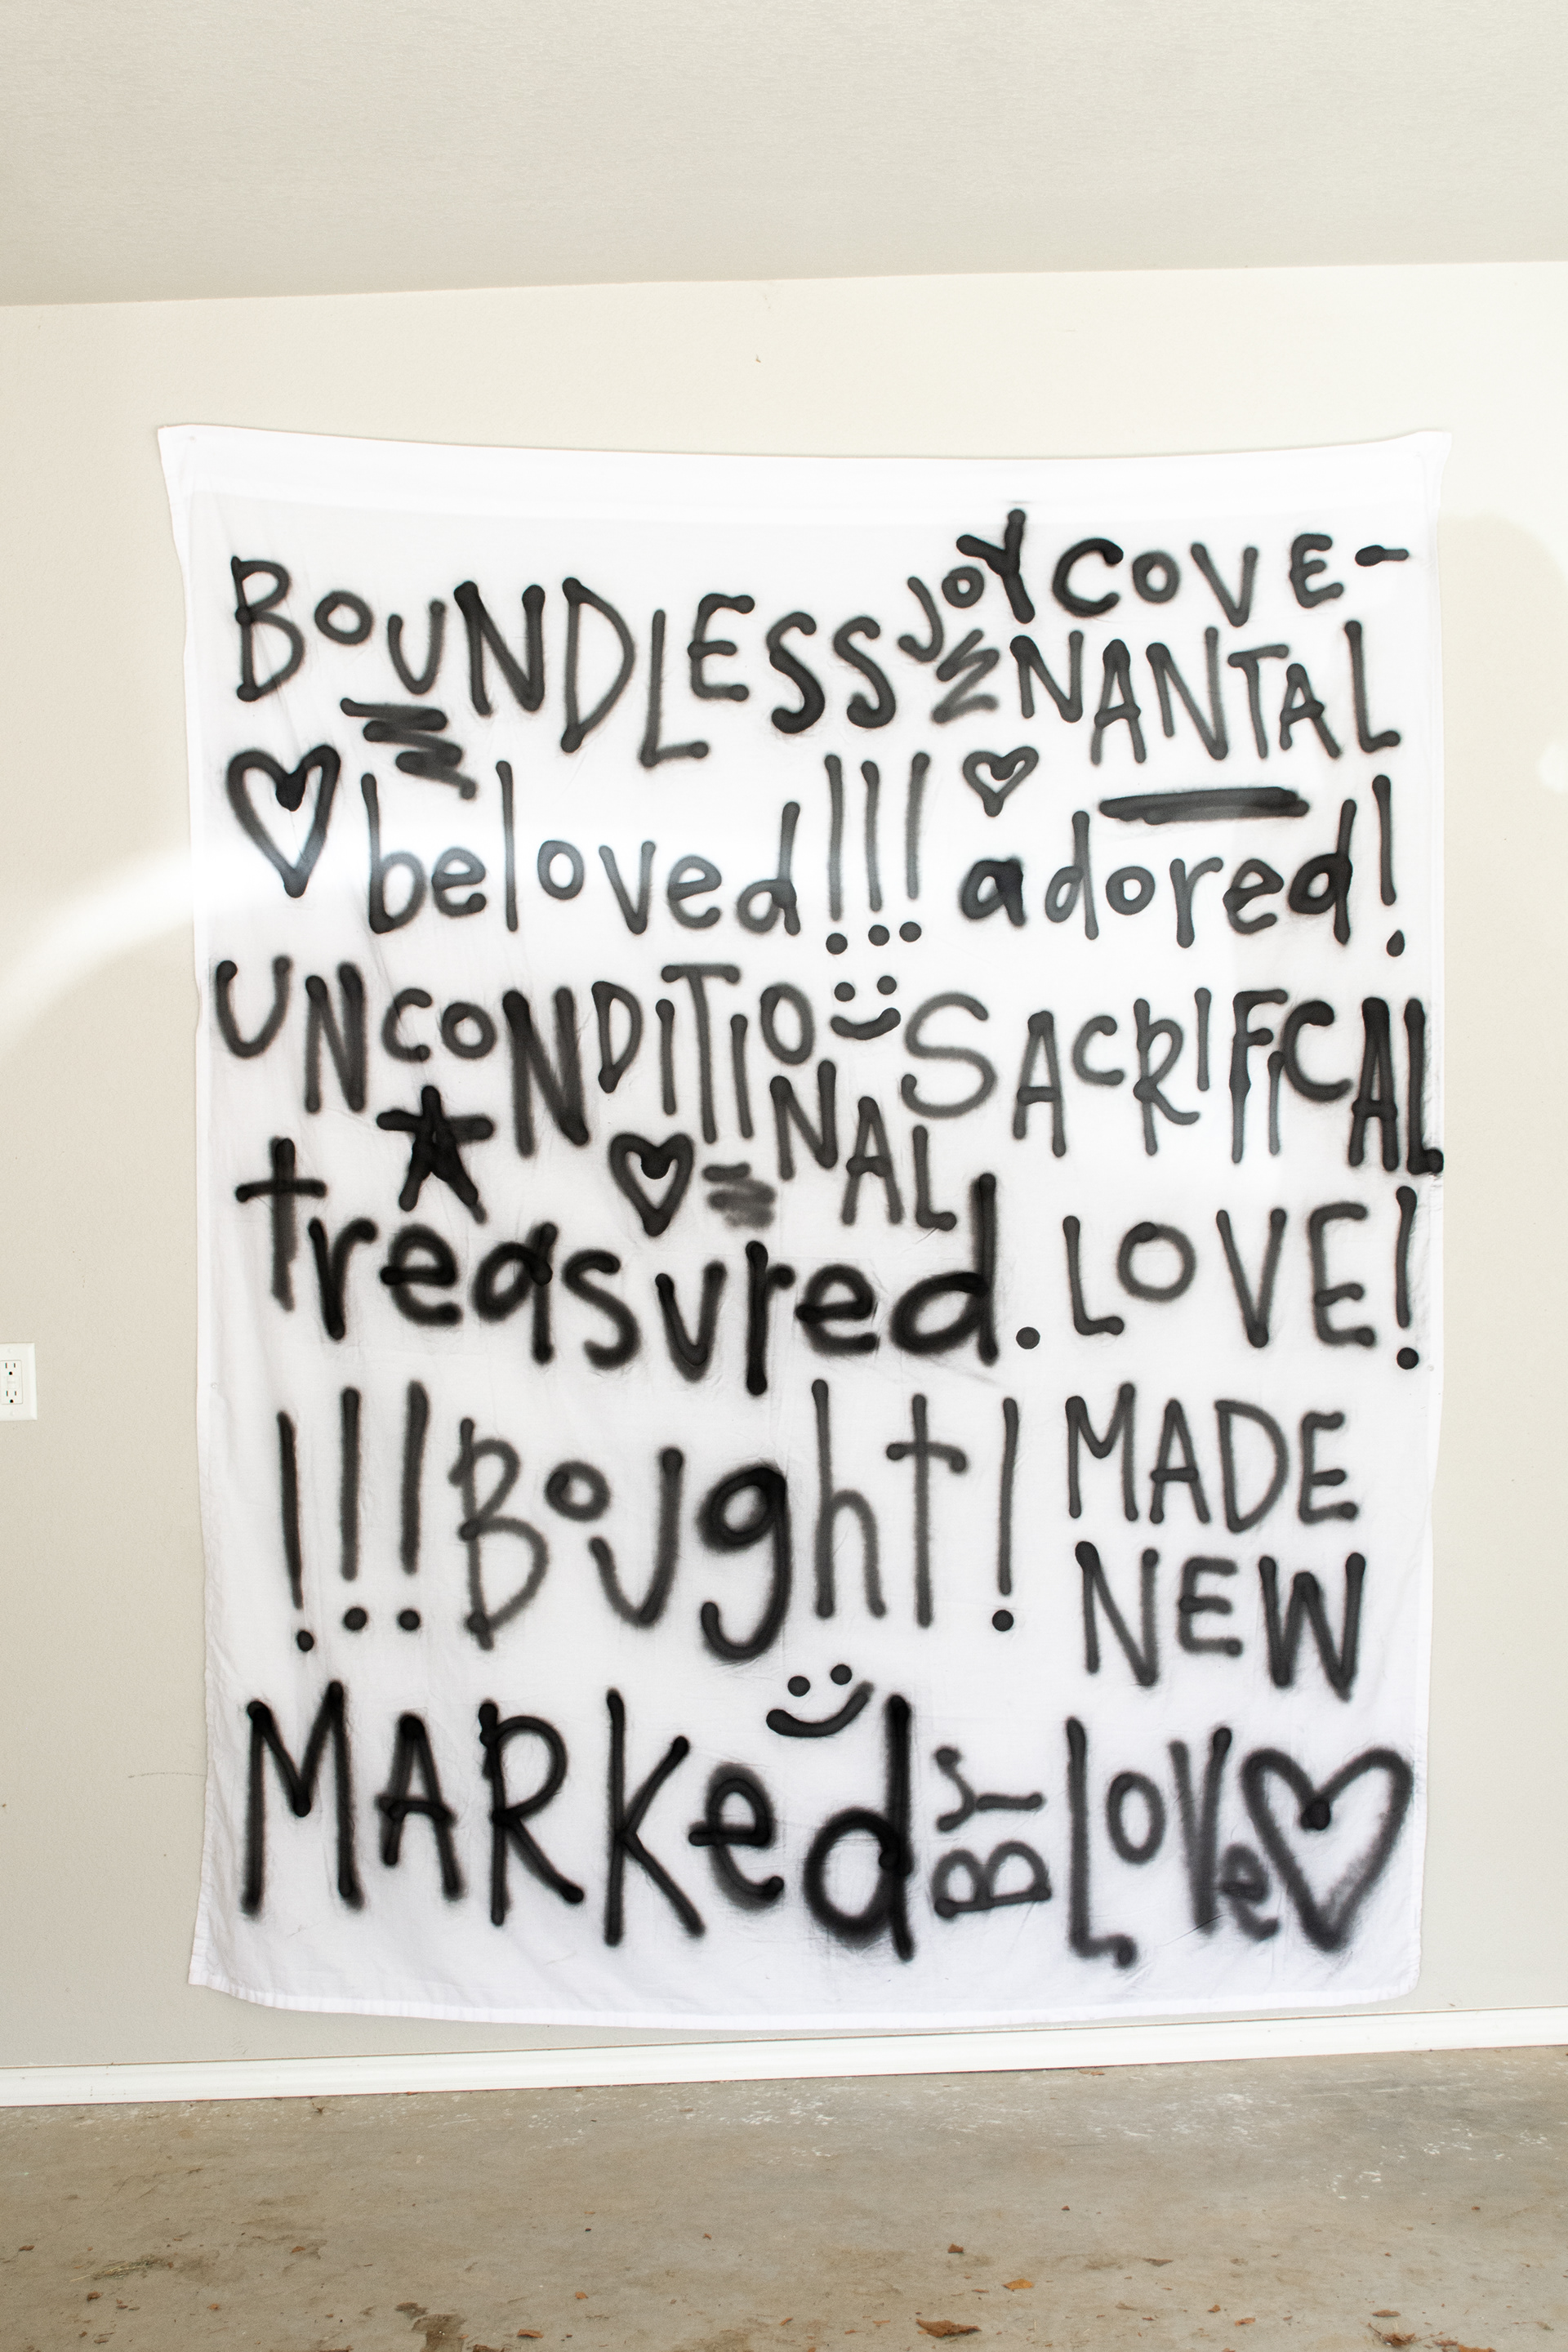 BOUNDLESS JOY COVE-
NANTAL
beloved!!! adored!
UNCONDITIO SACRIFICAL
NAL
treasured. LOVE!
!!!Bought! MADE
NEW
MARKed BY LOVe